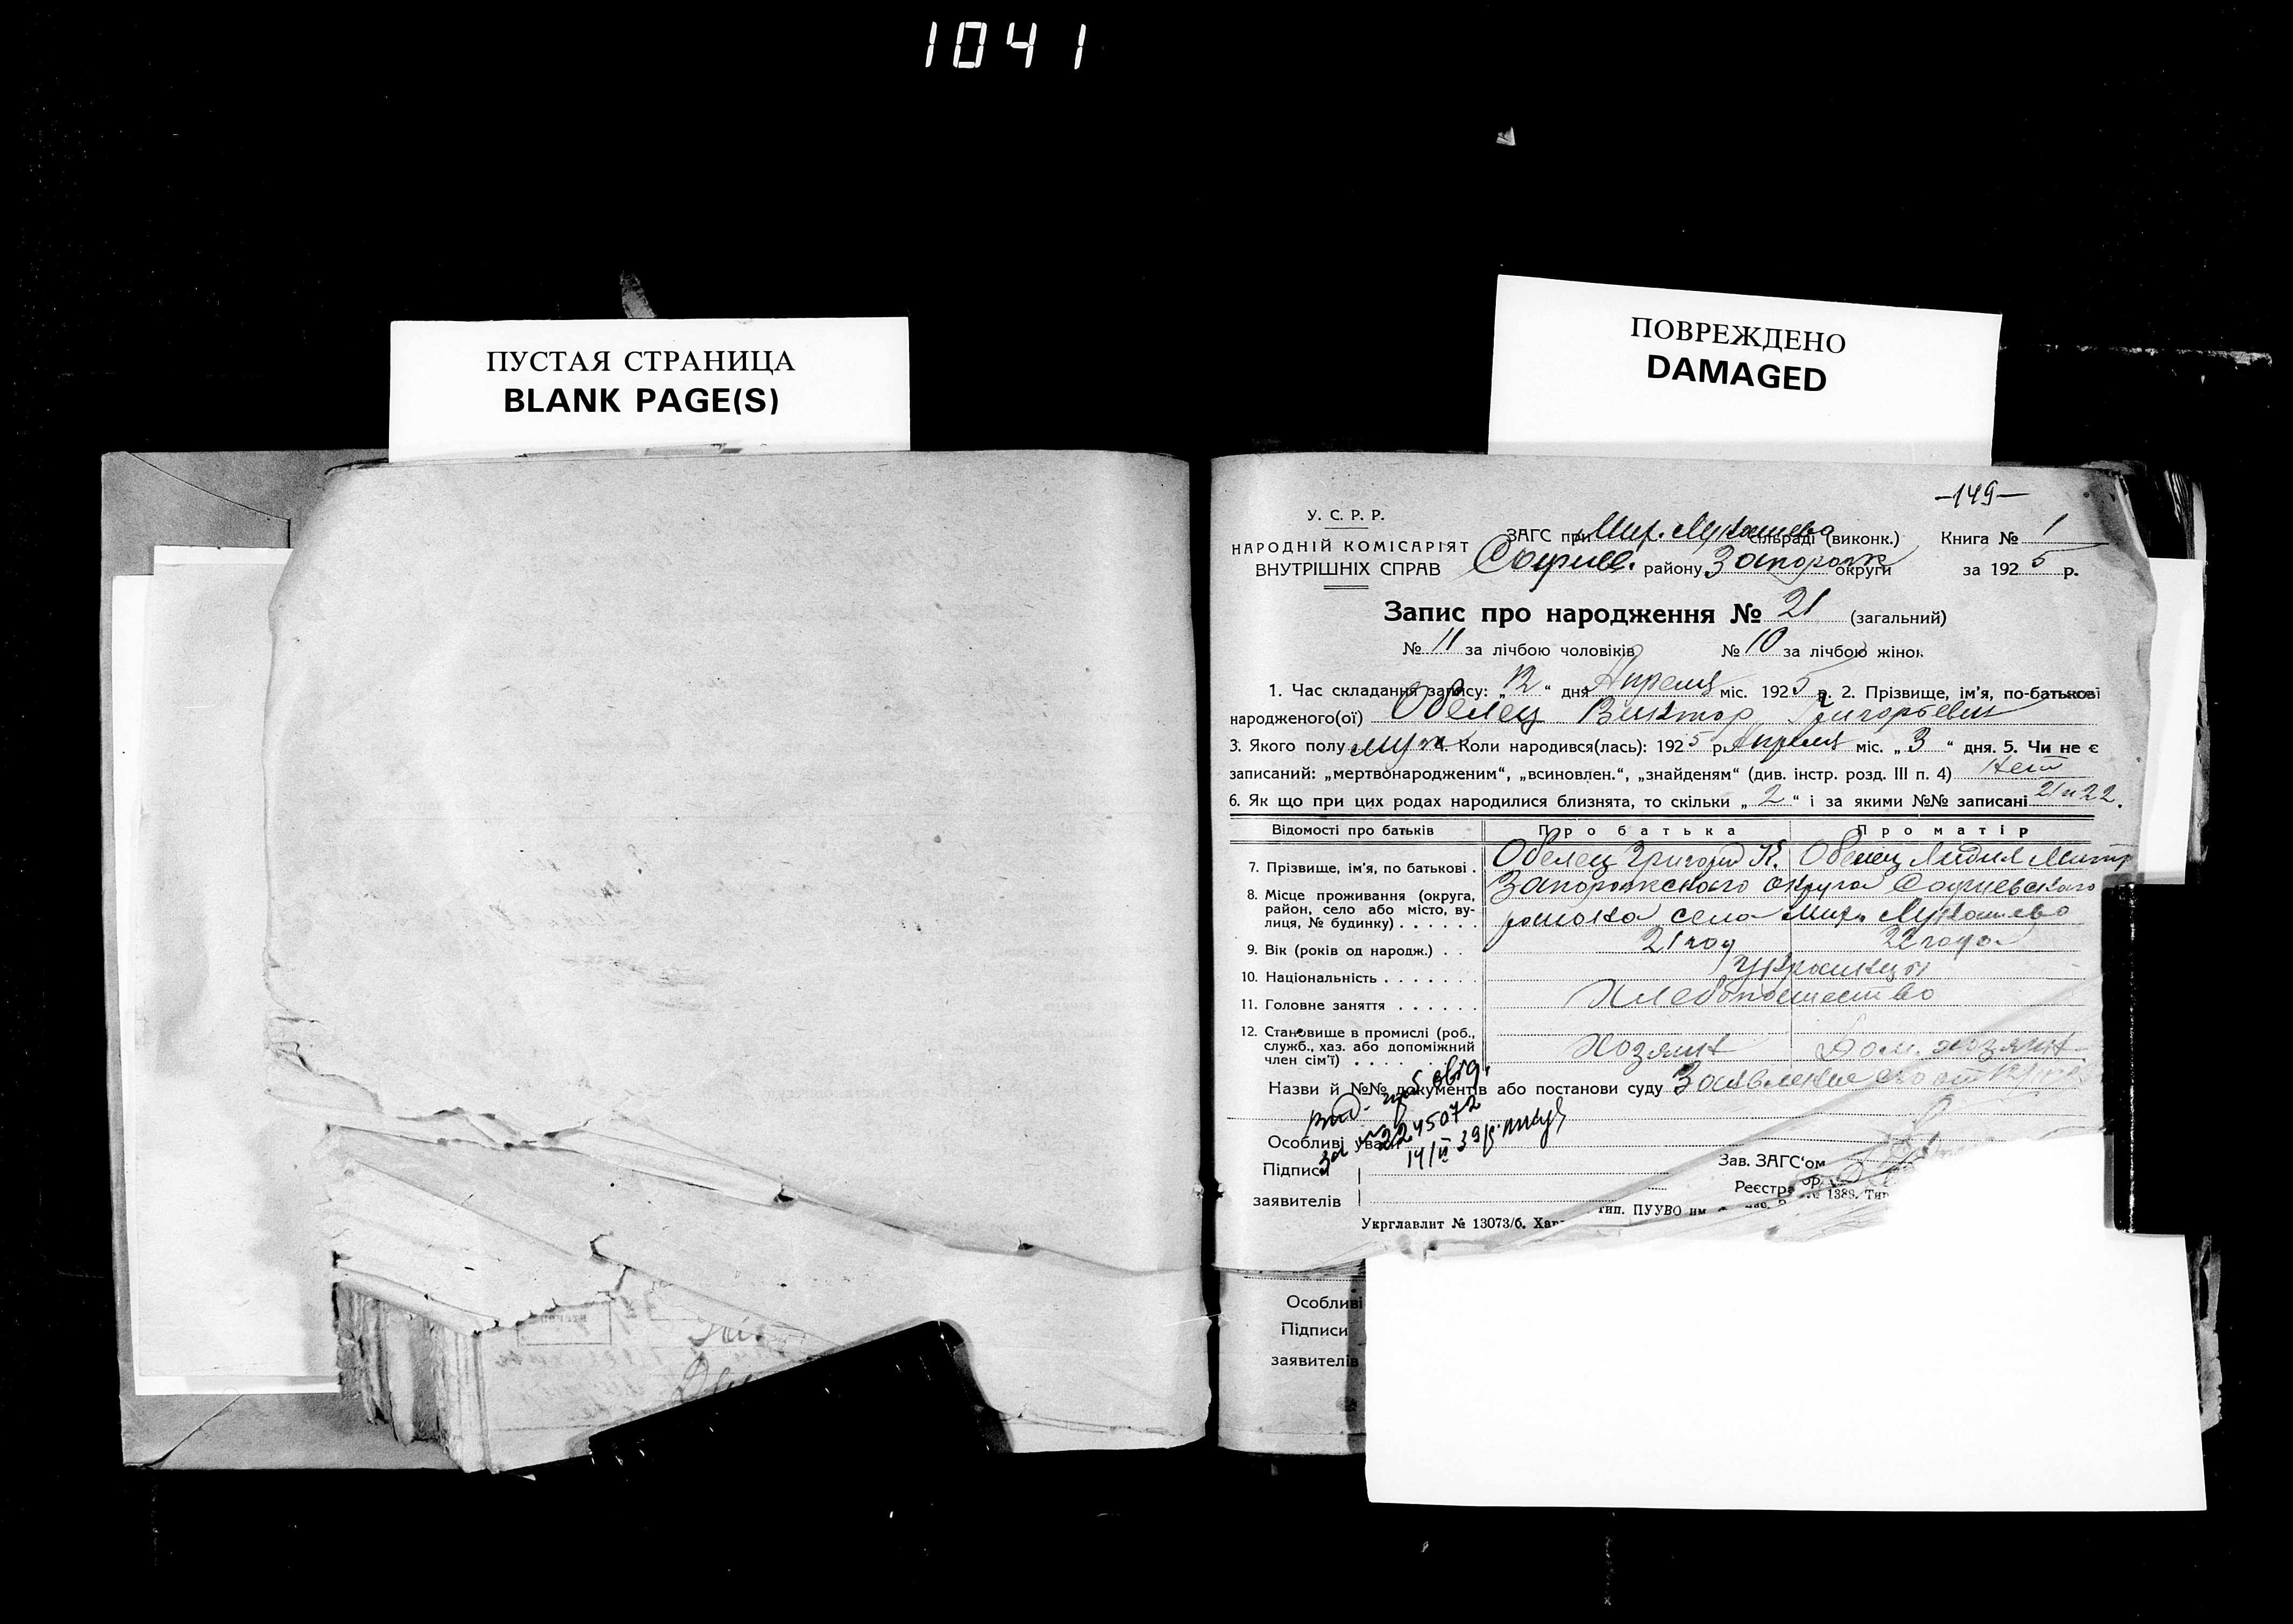 1041
ПУСТАЯ СТРАНИЦА
BLANK PAGE(S)
ПОВРЕЖДЕНО
DAMAGED
-149-
У. С. Р. Р.
НАРОДНІЙ КОМІСАРІЯТ
ВНУТРІШНІХ СПРАВ
ЗАГС при Мих. Лукашево сільраді (виконк.) Книга № 1
Софиев. району Запорож округи за 1925 р.
Запис про народження № 21 (загальний)
№ 11 за лічбою чоловіків № 10 за лічбою жінок
1. Час складання запису: „12“ дня Апреля міс. 1925 р. 2. Прізвище, ім'я, по-батькові
народженого(ої) Обелец Виктор Григорьевич
3. Якого полу муж 4. Коли народився(лась): 1925 р. Апреля міс. „3“ дня. 5. Чи не є
записаний: „мертвонародженим“, „всиновлен.“, „знайденям“ (див. інстр. розд. III п. 4) Нет
6. Як що при цих родах народилися близнята, то скільки „2“ і за якими №№ записані 21 и 22.
Відомості про батьків Про батька Про матір
7. Прізвище, ім'я, по батькові . Обелец Григорий К. Обелец Лидия Митр
8. Місце проживання (округа, район, село або місто, ву-лиця, № будинку) . . . . . . Запорожского округа Софиевского
района село Мих. Лукашево
9. Вік (років од народж.) . . 21 год 22 года
10. Національність . . . . . . . Украинцы
11. Головне заняття . . . . . . Хлебопашество
12. Становище в промислі (роб.,
служб., хаз. або допоміжний
член сім'ї) . . . . Хозяин Дом. хозяин
Назви й №№ документів або постанови суду Заявление его от
Вид.
№ 2245072
Особливі уваги
за 14/II 39 р.
Підписи Зав. ЗАГС'ом
заявителів Реєстратор
№ 1389. Тип
Укрглавлит № 13073/б. Хар тип. ПУУВО им
Особливі
Підписи
заявителів